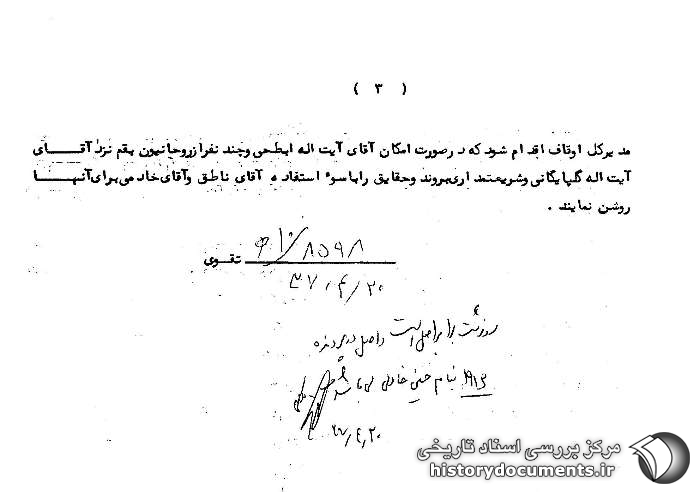 ( ۳ )
مدیرکل اوقاف اقدام شود که در صورت امکان آقای آیت اله ابطحی وچند نفرازروحانیون بقم نزد آقـــــای
آیت اله گلپایگانی وشریعتمداری بروند وحقایق راباسوء استفاده آقای ناطق وآقای خادمی برای آنهـــا
روشن نمایند .
تقـوی
۸۵۹۸
۳۷/۴/۲۰
رونوشت برابر اصل است اصل در پرونده
بنام خادمی می باشد
۴/۲۰
مرکز بررسی اسناد تاریخی
historydocuments.ir